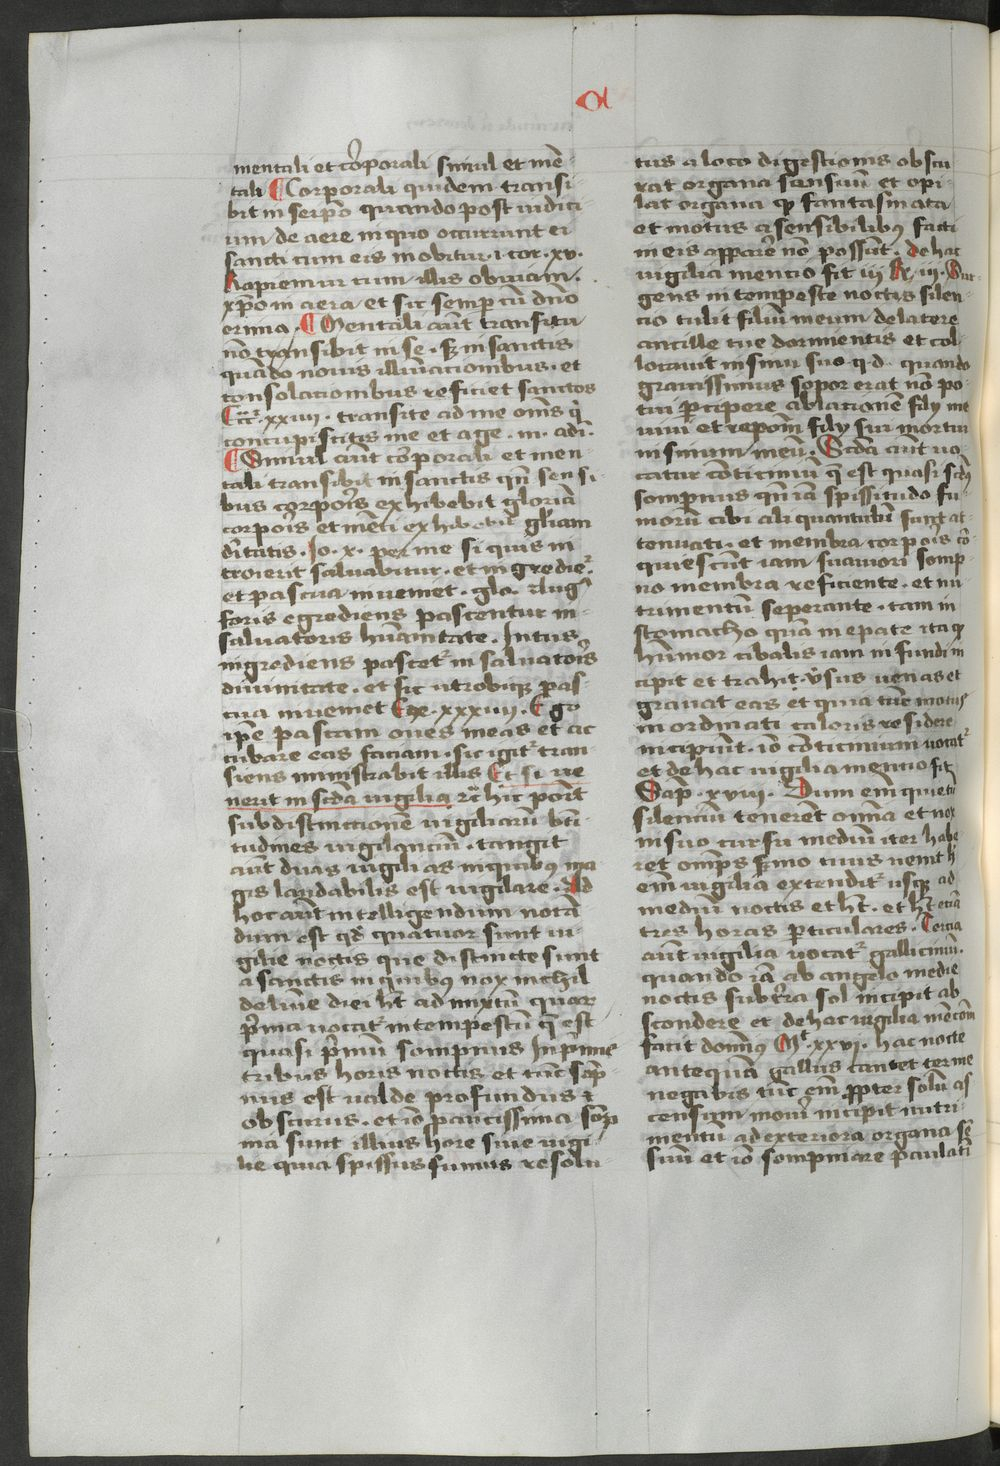 a
mentali et cõrporali simul et mẽ-
tali ¶ Corporali quidem transi-
bit in serpõ quando post iudici
um de aere in quo occurrunt ei
sancti cum eis in obitur · i · cor · xv ·
Rapiemur cum illis obuiam ·
xpõ in aera et sic semp cũ dño
erimus · ¶ Mentali aũt transitu
nõ transibit in se · sʒ in sanctis
quãdo nouis illũiacionibus · et
consolacionibus reficiet sanctos
Ecc · xxiiii · transite ad me oms q̃
concupiscitis me et a ge · m · adĩ ·
¶ Simul aũt corporali et men-
tali transibit in sanctis qñ sensi
bus corporis exhibebit gloriã
corporis et menti exhibebit gl̃iam
dĩtatis · Jo · x · per me si quis in
troierit saluabitur · et ingredie
et pascua inueniet · glo · Aug
foris egrediens pascentur in
saluatoris hũanitate · Intus
ingrediens pascet in saluatoris
diuinitate · et sic utrobique pas-
cua inueniet Eze · xxxiiii · Ego
ipẽ pascam oues meas et ac
cubare eas faciam · sic igit tran
siens ministrabit illis Et si ue
nerit in scd̃a uigilia ⁊c̃ hic ponit
subdistinctionẽ uigiliarũ bti
tudines uigilanciũ · tangit
aũt duas uigilias in quibus ma
gis laudabilis est uigilare · Ad
hoc aũt intelligendum notã
dum est qd̃ quatuor sunt ui-
gilie noctis que distincte sunt
a sanctis in quibus nox nichil
de lũie diei ht̃ ad mixtũ quar
p̃ma uocat intempestũ q̃ est
quasi p̃mũ sompnus In p̃mis
tribus horis noctis et tũc sõp
nus est ualde profundus ⁊
obscurus · et iõ paucissima sõp
nia sunt illius hore siue uigi-
lie quia spissus fumus resolu-
tus a loco digestionis obscu
rat organa sensuũ et opi-
lat organa q̃ fantasmata
et motus a sensibilibus facti
in eis apparẽ nõ possũt · de hac
uigilia mentio fit iii R · iii · Sur
gens intempeste noctis silen-
cio tulit filiũ meum de latere
ancille tue dormientis et col
locauit in sinu suo · q · d · quando
grauissimus sopor erat nõ po-
tui p̃cipere ablacionẽ filij me
um et reponẽ filij sui mortui
in sinum meũ · Scd̃a aũt uo
catur cõticiniũ q̃ est quasi scd̃us
sompnus qñ iã spissitudo fu-
morũ cibi aliquantulũ sunt at-
tenuati · et membra corpois cõ
quiescũt iam suauiori somp-
no membra reficiente · et nu
trimentũ seperante · tam in
stomacho quã in epate ita q̃
humor cibalis iam infundi in
cipit et trahit · ũsus uenas et
grauat eas et quia tũc motus
inordinati caloris residere
incipiũt · iõ cõticinium uocat
et de hac uigilia mentio fit
Sap · xviii · Dum em̃ quietũ
silenciũ tenerẽt om̃ia et nox
in suo cursu mediũ iter habe
ret omps sermo tuus uenit h
em̃ uigilia extendit usque ad
mediũ noctis et ht̃ · et ht̃ etiã
tres horas p̃ticulares · Tercia
aũt uigilia uocat gallicinũ ·
quando iã ab angelo medie
noctis sub t̃ra sol incipit ab
scondere et de hac uigilia mẽcõm
facit domi͂us Mt · xxvi · hac nocte
antequã gallus cantet ter me
negabis tũc em̃ ppter solũ as
censum mouẽ incipit nutri-
mentũ ad exteriora organa sẽ
suũ et iõ sompniare paulati